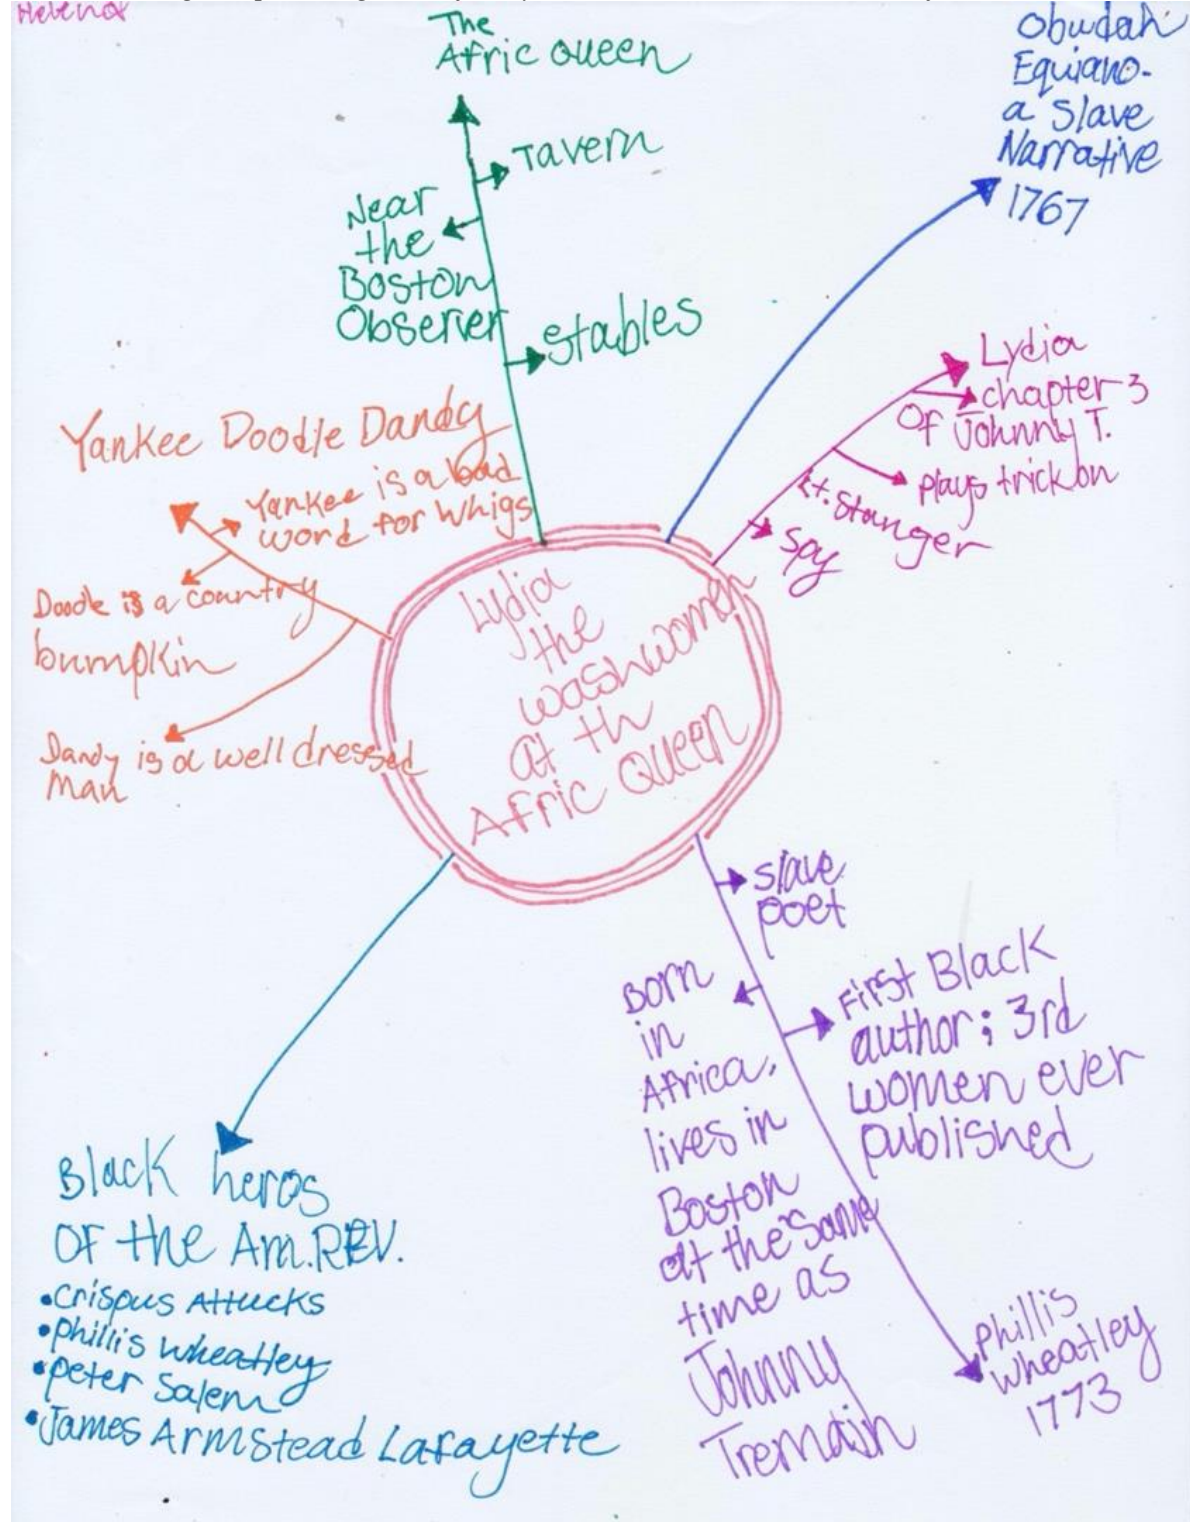 Helena
The
Afric Queen
Tavern
Near
the
Boston
Observer
Stables
Obudah
Equiano-
a Slave
Narrative
1767
Lydia
chapter 3
Of Johnny T.
plays trick on
Lt. Stanger
Spy
Yankee Doodle Dandy
Yankee is a bad
word for Whigs
Doodle is a country
bumpkin
Dandy is a well dressed
Man
Lydia
the
washwomen
at th
Afric Queen
Slave
poet
Born
in
Africa,
lives in
Boston
at the same
time as
Johnny
Tremain
First Black
author; 3rd
women ever
published
Phillis
Wheatley
1773
Black heros
OF the Am.REV.
•Crispus Attucks
•Phillis Wheatley
•Peter Salem
•James Armstead Lafayette